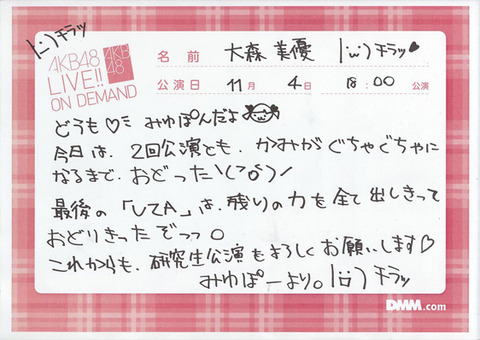 |ﾆ)チラッ
AKB48
LIVE!!
ON DEMAND
AKB
48
名前 大森美優 |ω)チラッ♥
公演日 11月 4日 18:00 公演
どうも♡ミ みゆぽんだよ
今日は、2回公演とも、かみがぐちゃぐちゃに
なるまで、おどった\(^o^)/
最後の「UZA」は、残りの力を全て出しきって
おどりきったぞっっ○
これからも、研究生公演をよろしくお願いします♡
みゆぽーより。|ü)チラッ
DMM.com